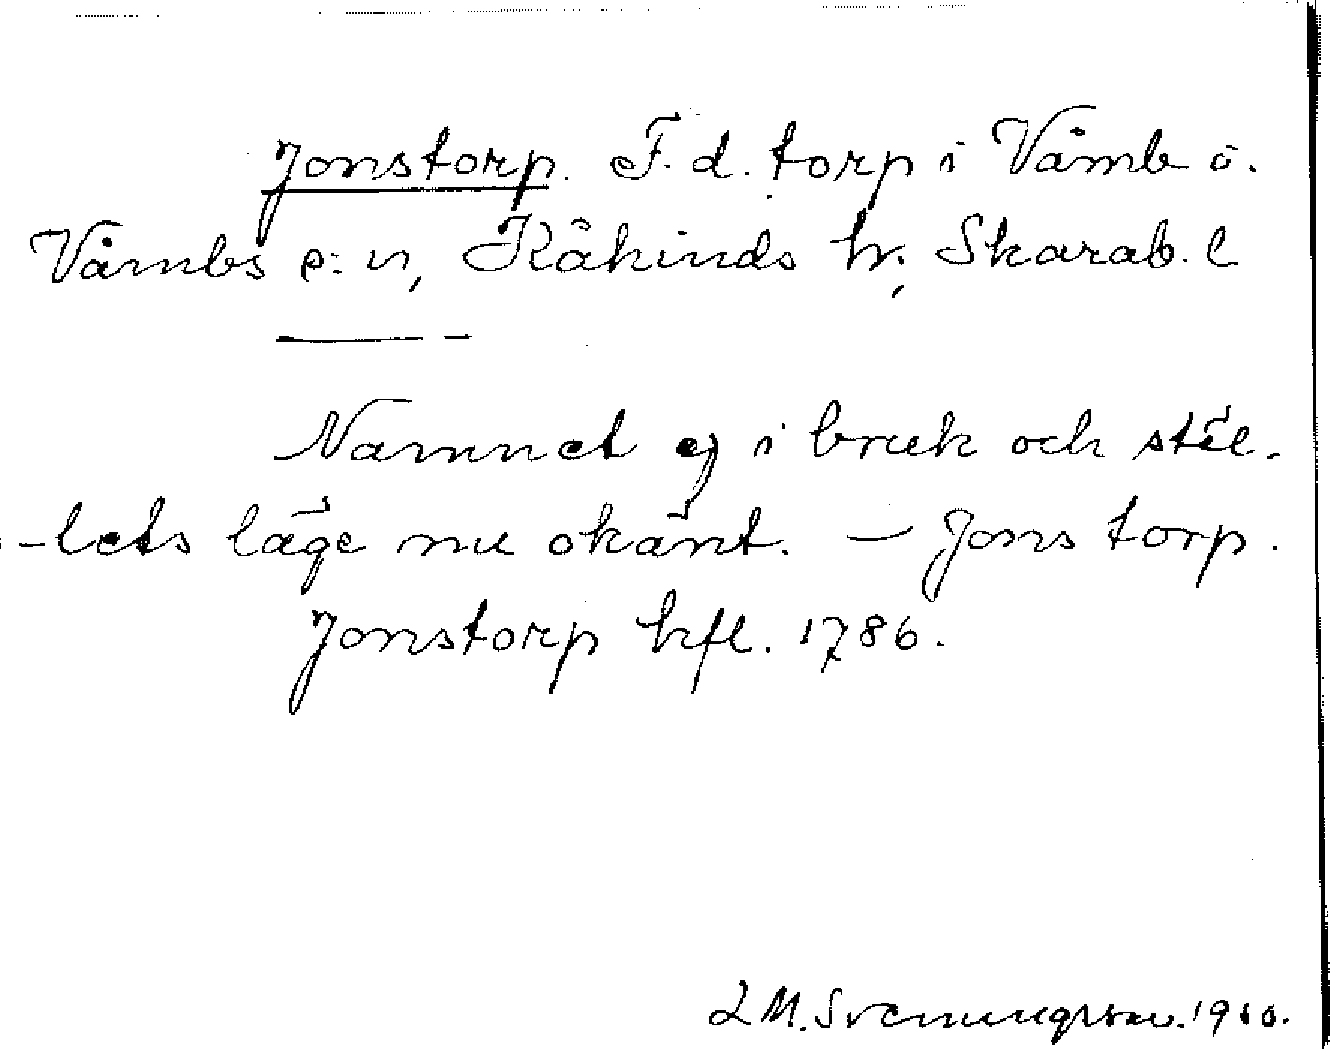 Jonstorp. F. d. torp i Våmb o.
Våmbs s:n, Kåkinds hr, Skarab. l
Namnet ej i bruk och stäl-
-lets läge nu okänt. — Jonstorp.
Jonstorp hfl. 1786.
L M. Svenungsson. 1910.